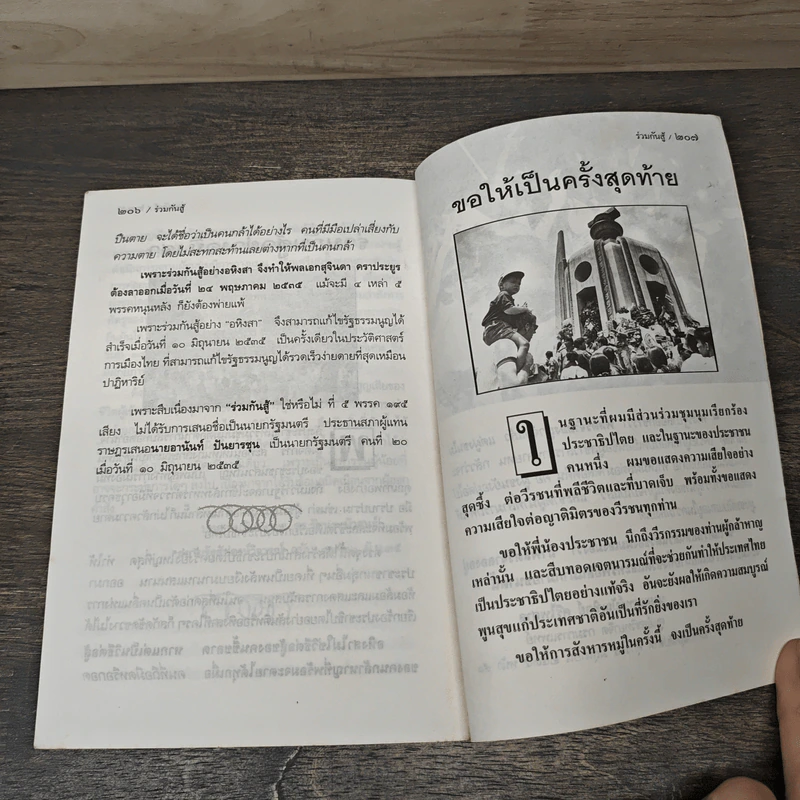 ๒๐๖ / ร่วมกันสู้
ปืนตาย จะได้ชื่อว่าเป็นคนกล้าได้อย่างไร คนที่มีมือเปล่าเสี่ยงกับ
ความตาย โดยไม่สะทกสะท้านเลยต่างหากที่เป็นคนกล้า
เพราะร่วมกันสู้อย่างอหิงสา จึงทำให้พลเอกสุจินดา คราประยูร
ต้องลาออกเมื่อวันที่ ๒๔ พฤษภาคม ๒๕๓๕ แม้จะมี ๔ เหล่า ๕
พรรคหนุนหลัง ก็ยังต้องพ่ายแพ้
เพราะร่วมกันสู้อย่าง "อหิงสา" จึงสามารถแก้ไขรัฐธรรมนูญได้
สำเร็จเมื่อวันที่ ๑๐ มิถุนายน ๒๕๓๕ เป็นครั้งเดียวในประวัติศาสตร์
การเมืองไทย ที่สามารถแก้ไขรัฐธรรมนูญได้รวดเร็วง่ายดายที่สุดเหมือน
ปาฏิหาริย์
เพราะสืบเนื่องมาจาก "ร่วมกันสู้" ใช่หรือไม่ ที่ ๕ พรรค ๑๙๕
เสียง ไม่ได้รับการเสนอชื่อเป็นนายกรัฐมนตรี ประธานสภาผู้แทน
ราษฎรเสนอนายอานันท์ ปันยารชุน เป็นนายกรัฐมนตรี คนที่ ๒๐
เมื่อวันที่ ๑๐ มิถุนายน ๒๕๓๕
ร่วมกันสู้ / ๒๐๗
ขอให้เป็นครั้งสุดท้าย
ในฐานะที่ผมมีส่วนร่วมชุมนุมเรียกร้อง
ประชาธิปไตย และในฐานะของประชาชน
คนหนึ่ง ผมขอแสดงความเสียใจอย่าง
สุดซึ้ง ต่อวีรชนที่พลีชีวิตและที่บาดเจ็บ พร้อมทั้งขอแสดง
ความเสียใจต่อญาติมิตรของวีรชนทุกท่าน
ขอให้พี่น้องประชาชน นึกถึงวีรกรรมของท่านผู้กล้าหาญ
เหล่านั้น และสืบทอดเจตนารมณ์ที่จะช่วยกันทำให้ประเทศไทย
เป็นประชาธิปไตยอย่างแท้จริง อันจะยังผลให้เกิดความสมบูรณ์
พูนสุขแก่ประเทศชาติอันเป็นที่รักยิ่งของเรา
ขอให้การสังหารหมู่ในครั้งนี้ จงเป็นครั้งสุดท้าย